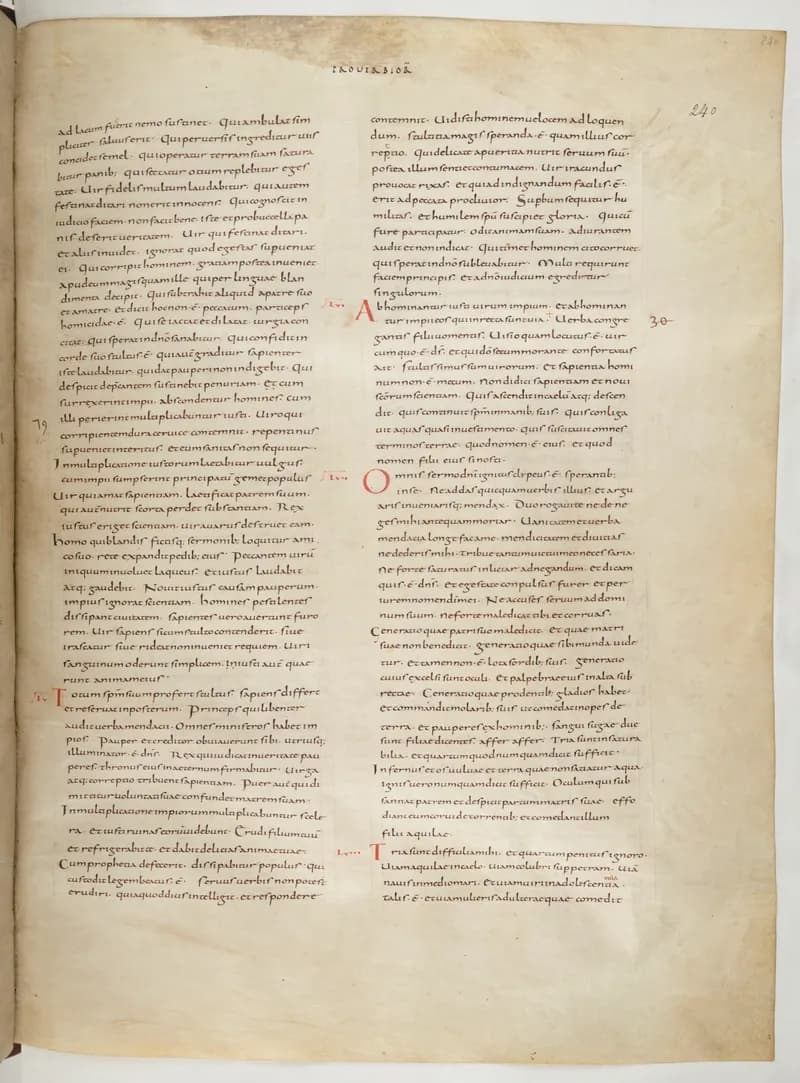 PROVERBIORŪ
240
ad lacum fugerit nemo sustinet. Qui ambulat sim
pliciter saluus erit. Qui peruersis ingreditur uiis
concidet semel. Qui operatur terram suam satura
bitur panib; qui sectatur otium replebitur eges
tate. Uir fidelis multum laudabitur. qui autem
festinat ditari non erit innocens. Qui cognoscit in
iudicio faciem non facit bene. iste et pro buccella pa
nis deserit ueritatem. Uir qui festinat ditari.
et aliis inuidet. ignorat quod egestas superueniat
ei. Qui corripit hominem. gratiam postea inueniet
apud eum magis quam ille qui per linguae blan
dimenta decipit. Qui subtrahit aliquid a patre suo
et a matre. et dicit hoc non ·ē· peccatum. particeps
homicidae ·ē· Qui se iactat et dilatat. iurgia con
citat. qui sperat in dnō sanabitur. Qui confidit in
corde suo stultus ·ē· qui autē graditur sapienter
iste laudabitur. qui dat pauperi non indigebit. Qui
despicit depcantem sustinebit penuriam. Et cum
surrexerint impii. abscondentur homines. cum
19
illi perierint multiplicabuntur iusti. Uiro qui
corripientem dura ceruice contemnit. repentinus
superueniet interitus. et eum sanitas non sequitur.
In multiplicatione iustorum laetabitur uulgus.
cum impii sumpserint principatū gemet populus
Uir qui amat sapientiam. laetificat patrem suum.
qui autē nutrit scorta perdet substantiam. Rex
iustus erigit terram. uir auarus destruet eam.
homo qui blandis fictisq; sermonib; loquitur ami
co suo. rete expandit pedib; eius. Peccantem uirū
iniquum inuoluet laqueus. et iustus laudabit
atq; gaudebit. Nouit iustus causam pauperum.
impius ignorat scientiam. homines pestilentes
dissipant ciuitatem. sapientes uero auertunt furo
rem. Uir sapiens si cum stulto contenderit. siue
irascatur siue rideat non inueniet requiem. Uiri
sanguinum oderunt simplicem. iusti autē quae
runt animam eius
Totum spm̄ suum profert stultus. sapiens differt
et reseruat in posterum. Princeps qui libenter
audit uerba mendacii. Omnes ministros habet im
pios. Pauper et creditor obuiauerunt sibi. utriusq;
illuminator ·ē· dns̄. Rex qui iudicat in ueritate pau
peres. thronus eius in aeternum firmabitur. Uirga
atq; correptio tribuent sapientiam. Puer autē qui di
mittitur uoluntati suae confundet matrem suam.
In multiplicatione impiorum multiplicabuntur scele
ra. et iusti ruinas eorum uidebunt. Erudi filium tuū
et refrigerabit te. et dabit delicias animae tuae.
Cum prophetia defecerit. dissipabitur populus. qui
custodit legem beatus ·ē· seruus uerbis non potest
erudiri. quia quod dicis intellegit. et respondere
contemnit. Uidisti hominem uelocem ad loquen
dum. stultitia magis speranda ·ē· quam illius cor
reptio. Qui delicate a pueritia nutrit seruum suū.
postea illum sentiet contumacem. Uir iracundus
prouocat rixas. et qui ad indignandum facilis ·ē·
erit ad peccata procliuior. Superbum sequitur hu
militas. et humilem spū suscipiet gloria. Qui cū
fure participatur. odit animam suam. adiurantem
audit et non indicat. Qui timet hominem cito corruet.
qui sperat in dnō subleuabitur. Multi requirunt
faciem principis. et a dnō iudicium egreditur
singulorum.
30
Abhominantur iusti uirum impium. et abhominan
tur impii eos qui in recta sunt uia. Uerba congre
gantis filii uomentis. Uisio quam locutus ·ē· uir
cum quo ·ē· ds̄. et qui dō secum morante confortatus
ait. Stultissimus sum uirorum. et sapientia homi
num non ·ē· mecum. Non didici sapientiam et noui
scōrum scientiam. Quis ascendit in caelū atq; descen
dit. quis continuit spm̄ in manib; suis. Quis conliga
uit aquas quasi in uestimento. quis suscitauit omnes
terminos terrae. quod nomen ·ē· eius. et quod
nomen filii eius si nosti.
Omnis sermo dnī ignitus clypeus ·ē· sperantib;
in se. Ne addas quicquam uerbis illius. et argu
aris inueniarisq; mendax. Duo rogaui te ne dene
ges mihi antequam moriar. Uanitatem et uerba
mendacia longe fac a me. mendicitatem et diuitias
ne dederis mihi. tribue tantum uictui meo necessaria.
Ne forte saturatus inliciar ad negandum. et dicam
quis ·ē· dns̄. et egestate conpulsus furer et per
iurem nomen dī mei. Ne accuses seruum ad domi
num suum. ne forte maledicat tibi et corruas.
Generatio quae patri suo maledicit. et quae matri
suae non benedicit. generatio quae sibi munda uide
tur. et tamen non ·ē· lota sordib; suis. generatio
cuius excelsi sunt oculi. et palpebrae eius in alta sub
rectae. Generatio quae pro dentib; gladios habet.
et commandit molarib; suis ut comedat inopes de
terra. et pauperes ex hominib;. Sanguisugae due
sunt filiae dicentes. affer affer. Tria sunt insatura
bilia. et quartum quod numquam dicit sufficit.
Infernus et os uuluae et terra quae non satiatur aqua.
ignis uero numquam dicit sufficit. Oculum qui sub
sannat patrem et despicit partum matris suae. effo
diant eum corui de torrentib; et comedant illum
filii aquilae.
Tria sunt difficilia mihi. et quartum penitus ignoro.
Uiam aquilae in caelo. uiam colubri super petram. uiā
nauis in medio mari. et uiam uiri in adoliscentia.
talis ·ē· et uia mulieris adulterae quae comedit